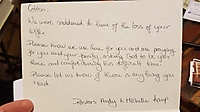 We were saddened to hear of the loss of your
wife.
Please know we are here for you and are praying
for you and your family, asking God to be
and comfort during this difficult time.
Please let us know if there is anything you
need.
& Michelle